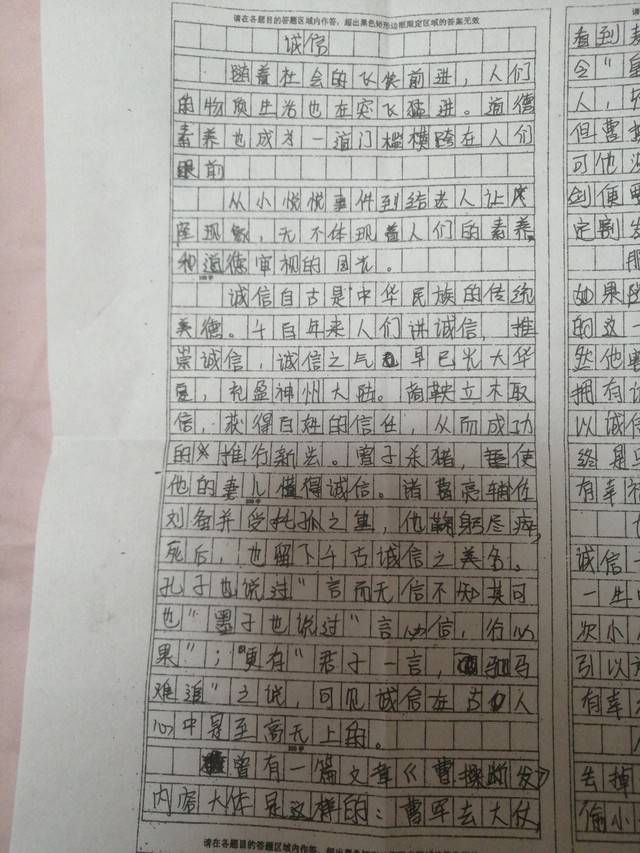 请在各题目的答题区域内作答，超出黑色矩形边框限定区域的答案无效
诚信
随着社会的飞快前进，人们
的物质生活也在突飞猛进。道德
素养也成为一道门槛横跨在人们
眼前
从小悦悦事件到结迷人让座
座现象，无不体现着人们的素养，
和道德审视的目光。
诚信自古是中华民族的传统
美德。千百年来人们讲诚信，推
崇诚信，诚信之气早已光大华
夏，礼盈神州大陆。商鞅立木取
信，获得百姓的信任，从而成功
的推行新法。曾子杀猪，使
他的妻儿懂得诚信。诸葛亮辅佐
刘备并受托孤之重，他鞠躬尽瘁，
死后，也留下千古诚信之美名。
孔子也说过"言而无信不知其可
也"墨子也说过"言必信，行必
果"；"更有"君子一言，驷马
难追"之说，可见诚信在古人
心中是至高无上的。
曾有一篇文章《曹操断发》
内容大体是这样的：曹军去大仗，
请在各题目的答题区域内作答，超出黑色矩形边框限定区域的答案无效
看到
令"
人，
但曹操
可他没
剑便要
定割发
那
如果
的这一
然他
拥有诚
以诚信
终是
有幸
诚信一
一生
次小
引以
有幸
去掉
偷小